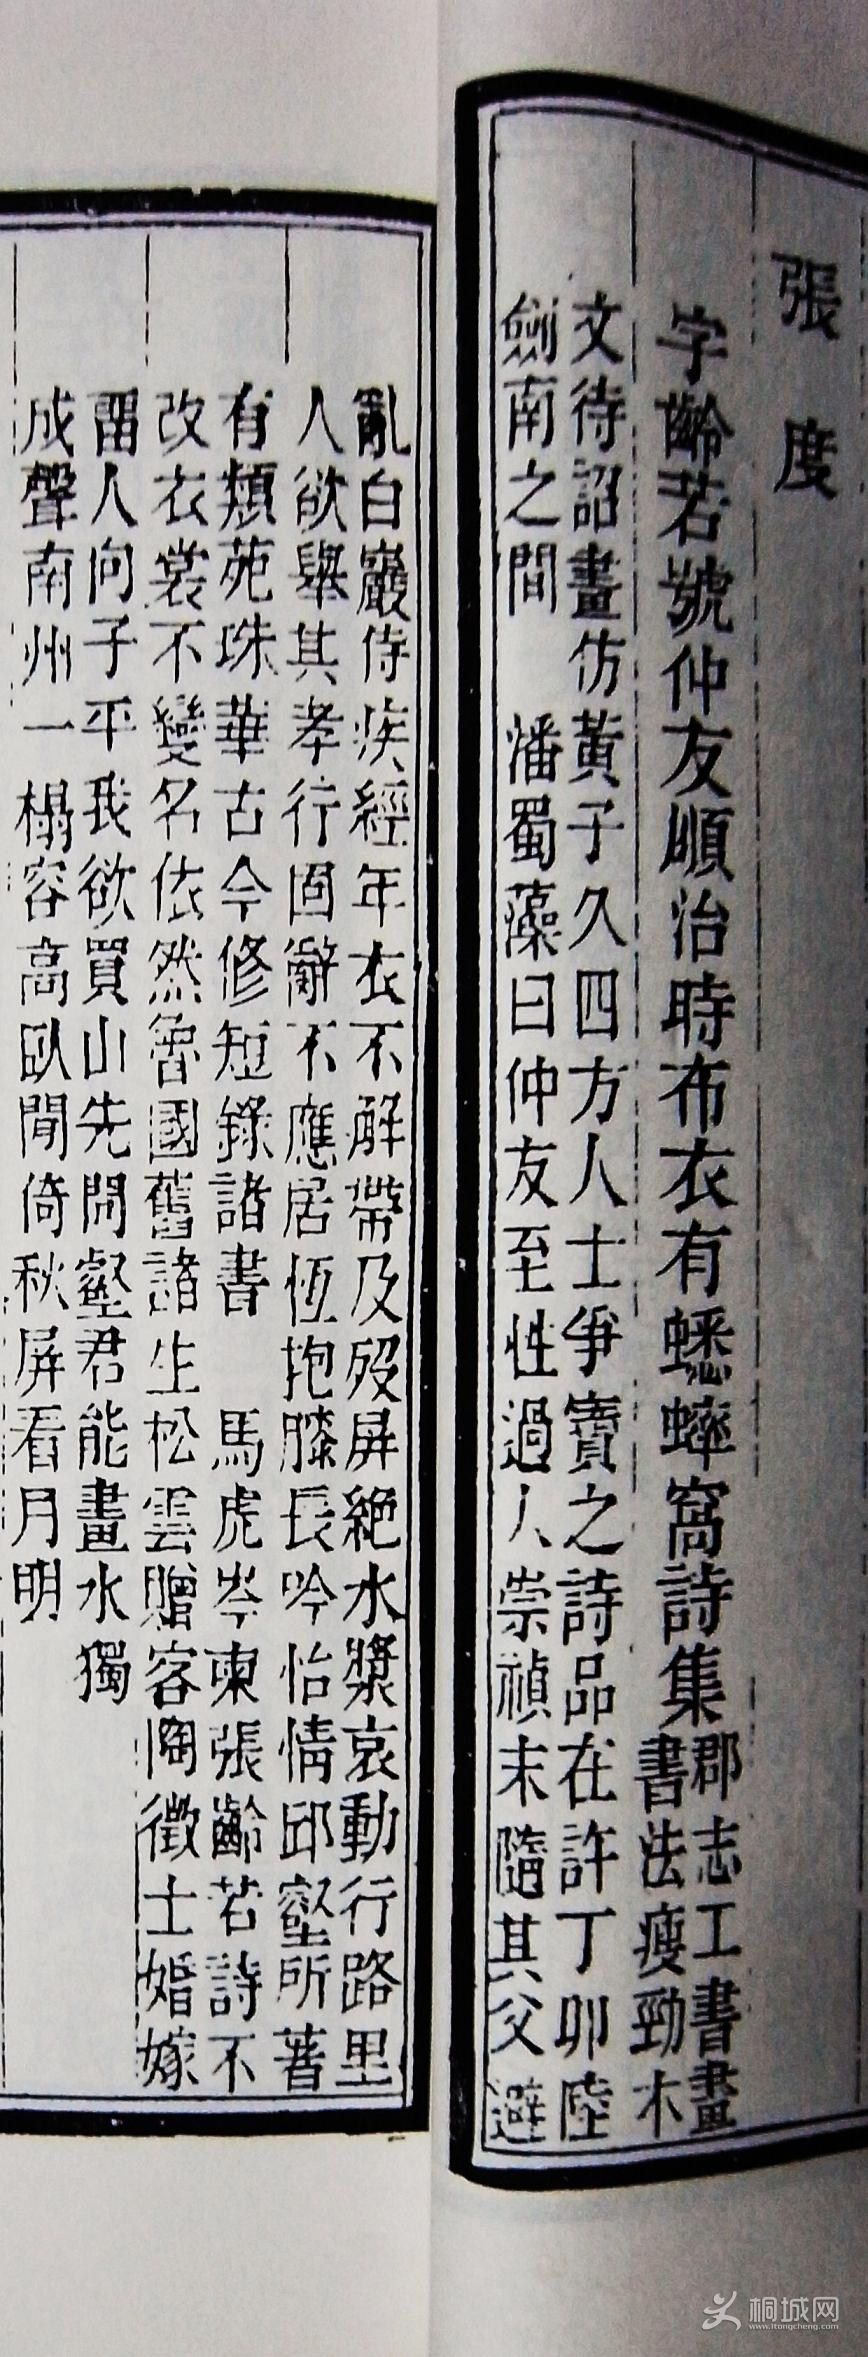 張度
字齡若號仲友順治時布衣有蟋蟀窩詩集
郡志工書畫
書法瘦勁木
文待詔畫仿黃子久四方人士爭寶之詩品在許丁卯陸
劍南之間 潘蜀藻曰仲友至性過人崇禎末隨其父避
亂白巖侍疾經年衣不解帶及歿屏絶水漿哀動行路里
人欲舉其孝行固辭不應居恆抱膝長吟怡情邱壑所著
有類苑珠華古今修短錄諸書 馬虎岑柬張齡若詩不
改衣裳不變名依然魯國舊諸生松雲贈客陶徵士婚嫁
畱人向子平我欲買山先問壑君能畫水獨
成聲南州一榻容高臥閒倚秋屏看月明
桐城网
www.itongcheng.com